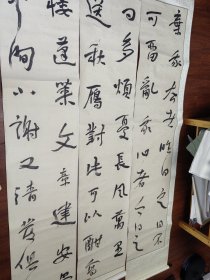 棄我去者昨日之日不
可留亂我心者今日之
日多煩憂長風萬里
送秋鴈對此可以酣高
樓蓬萊文章建安骨
中間小謝又清發俱